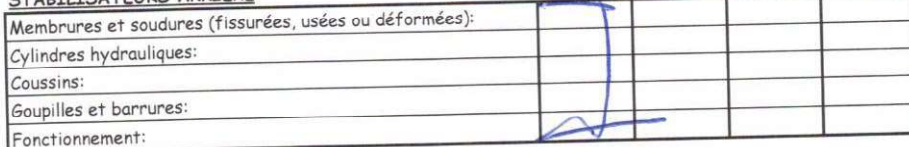 STABILISATEURS ARRIÈRE
Membrures et soudures (fissurées, usées ou déformées):
Cylindres hydrauliques:
Coussins:
Goupilles et barrures:
Fonctionnement: